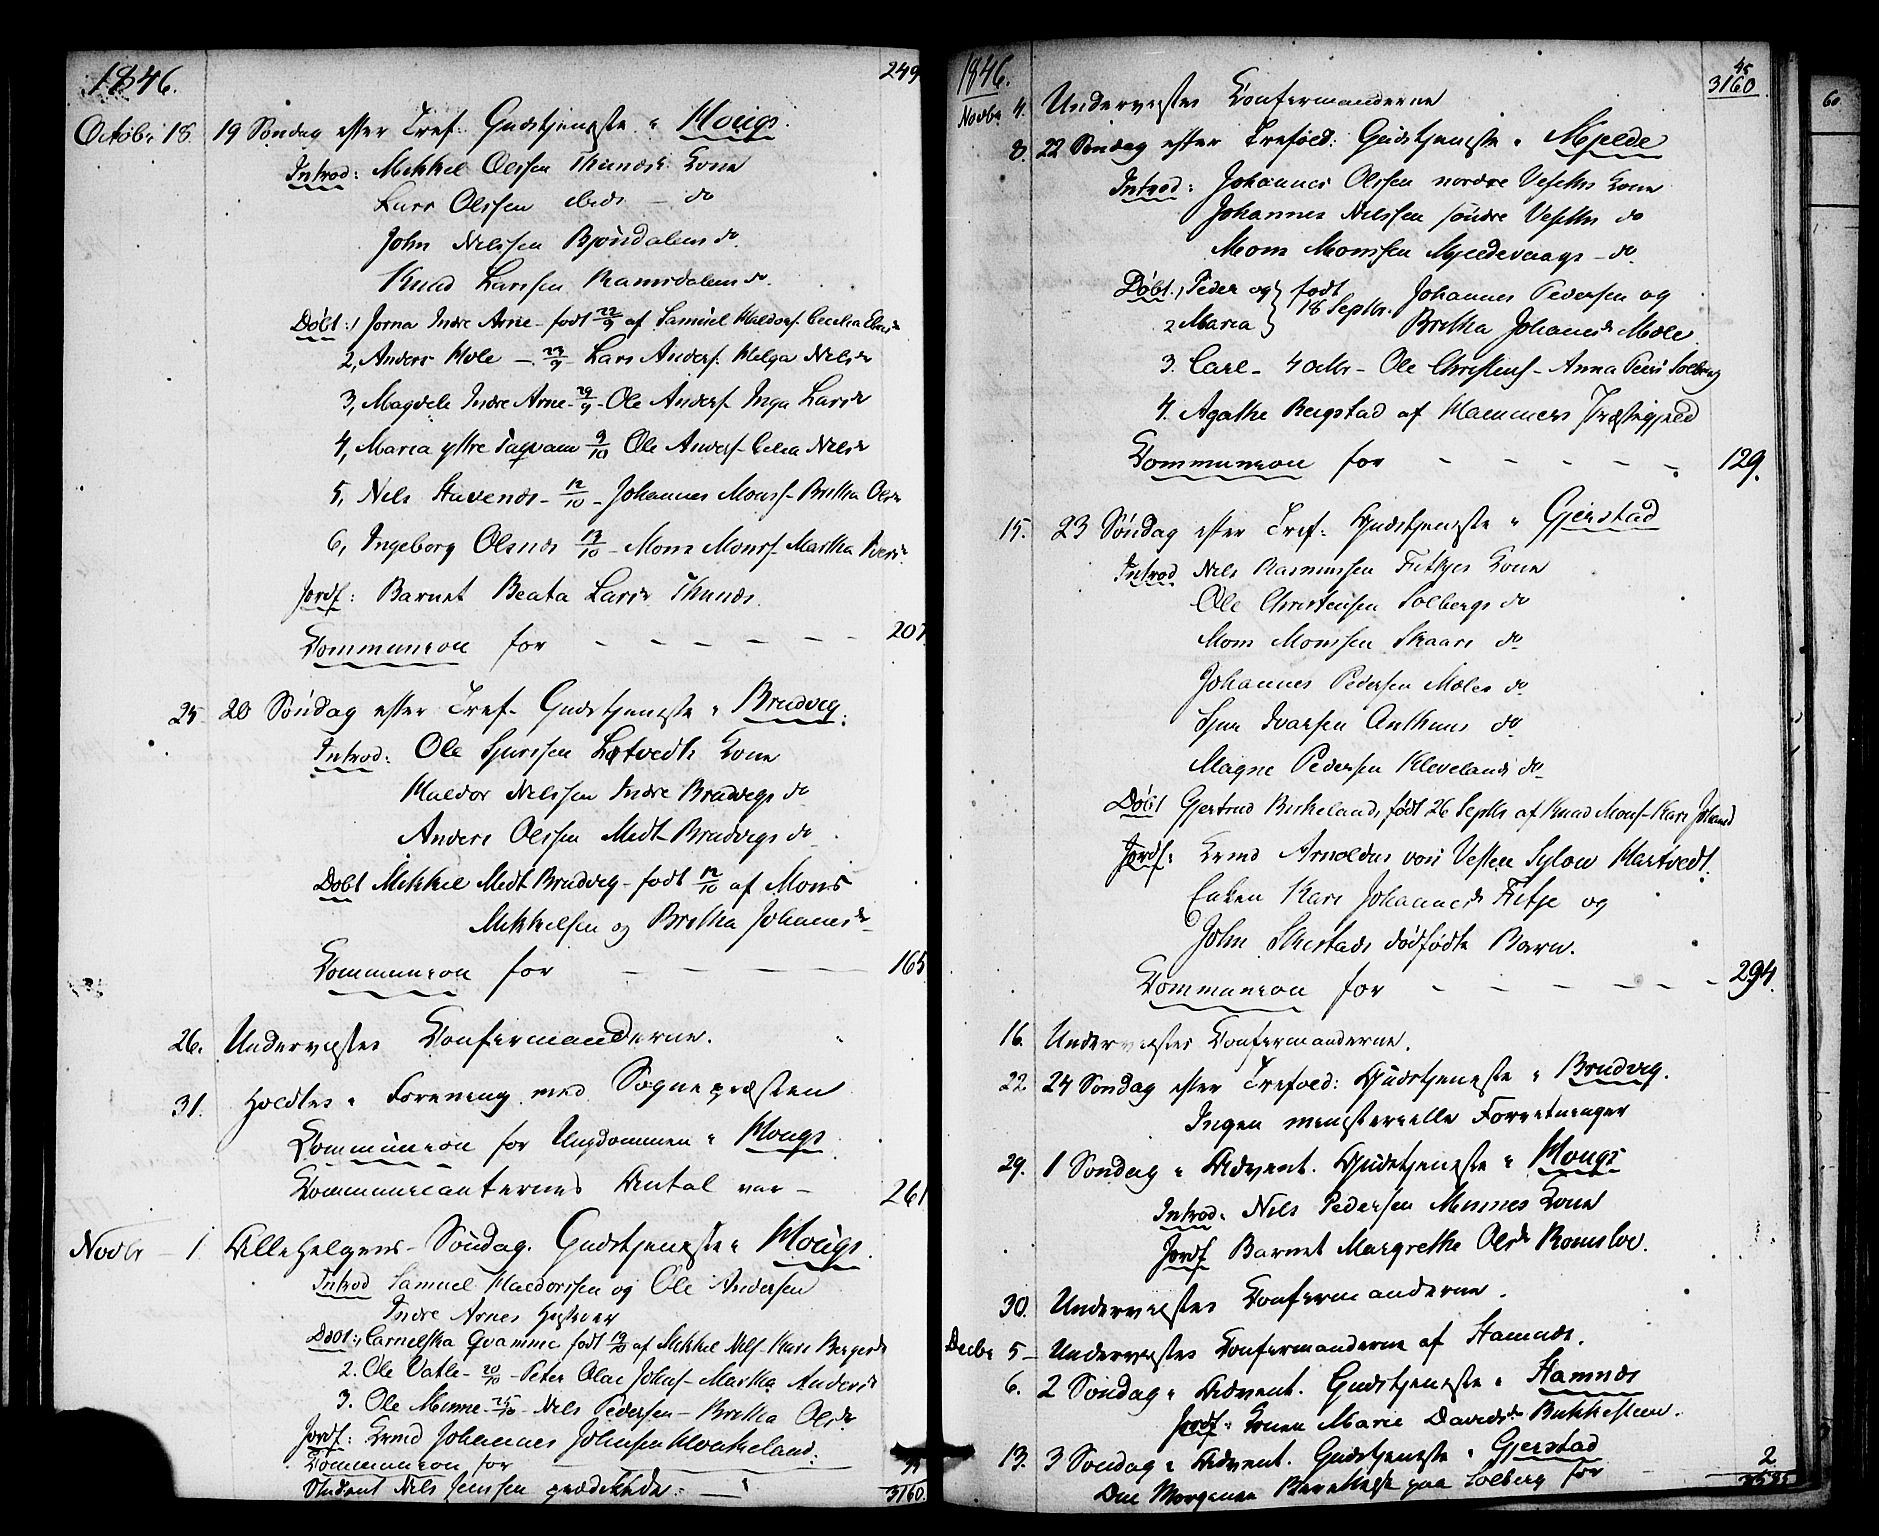 1846.
249
Octobr 18. 19 Søndag efter Tref: Gudstjeneste i Hougs.
Introd: Mikkel Olssen Thunæs Kone
Lars Olssen ibids – do
John Nilssen Bjørndalens do.
Knud Larssen Ramsdalens do.
Døbt: 1 Jorna Indre Arne – født 22/9 af Samuel Haldors. Cecilia
2, Anders Hole – 23/9 Lars Anders. Helga Nilsdr
3, Magdeli Indre Arne – 29/9 – Ole Anders. Inga Larsdr
4, Maria yttre Taqvam 9/10 Ole Anders – Celia Nilsdr
5, Nils Stavenæs – 12/10 – Johannes Monss – Britha Olsdr
6, Ingeborg Olsnæs 13/10 – Mons Monss. Martha Iversdr.
Jordf: Barnet Beata Larsdr Thunæs.
Communion for – – – – – – 207
25 20 Søndag efter Tref – Gudstjeneste i Brudvig.
Introd: Ole Sjurssen Løtvedts Kone
Haldor Nilssen Indre Brudvigs do
Anders Olssen Medt-Brudvigs do
Døbt Mikkel Medt Brudvig – født 12/10 af Mons
Mikkelsen og Britha Johannesdr
Communion for – – – – 165
26. Underviistes Confirmanderne.
31. Holdtes i Forening med Sognepræsten
Communion for Ungdommen i Hougs.
Communicanternes Antal var – 261
Novbr – 1. Allehelgens – Søndag. Gudstjeneste i Hougs.
Introd Samuel Haldorssen og Ole Andersen
Indre Arnes Hustruer
Døbt: 1, Carnelska Qvamme født 19/10 af Mikkel Nils – Kari Bergesdr
2. Ole Vatle – 20/10 – Peter Olai Johns – Martha Andersdr
3. Ole Minne – 25/10 – Nils Pedersen – Britha Olsdr
Jordf: Kmd Johannes Johnsen
Communion for
Student Nils Jenssen prædikede. –
3160.
1846.
3160
Novbr 4. Underviistes Confirmanderne
8. 22 Søndag efter Trefold: Gudstjeneste i Mjelde
Introd: Johannes Olssen nordre Veseths Kone
Johannes Nilssen søndre Veseths do
Mons Monssen Mjeldevaags – do
Døbt. 1, Peder og } født Johannes Pedersen og
2 Maria } 18 Septbr. Britha Johansdr Mæle
3. Carl – 4 octbr – Ole Christens – Anna Peersdr Solberg
4. Agathe Bergstad af Hammers Præstegjeld
Communion for – – – – – 129.
15. 23 Søndag efter Tref: Gudstjeneste i Gjerstad
Introd Nils Rasmussen Fitjes Kone
Ole Christensen Solbergs do
Mons Monssen Skaars do
Johannes Pedersen Mæles do
Sjur Ivarsen Anthuns do
Magne Pedersen Kleveland do
Døbt Gjertrud Birkelands født 26 Septbr af Knud Mons – Kari
Jordf: Kmd Arnoldus von Vesten Sylow Hartvedt.
Enken Kari Johannesdr Fitje og
John Skistads dødfødte Barn.
Communion for – – – – – – 294.
16. Underviistes Confirmanderne.
22. 24 Søndag efter Trefold: Gudstjeneste i Brudvig.
Ingen ministerielle Forretninger
29. 1 Søndag i Advent. Gudstjeneste i Hougs
Introd. Nils Pedersen Minnes Kone
Jordf Barnet Margrethe Olsdr Romslo.
30. Underviistes Confirmanderne.
Decbr 5 – Underviistes Confirmanderne af Stamnæs.
6. 2 Søndag i Advent. Gudstjeneste i Stamnæs
Jordf: Konen Marie Davidsdr
13. 3 Søndag i Advent. Gudstjeneste i Gjerstad
Om Morgenen Berettelse paa Solberg for 2
60